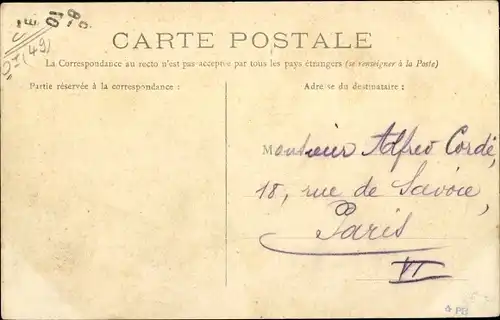 CARTE POSTALE
La Correspondance au recto n'est pas acceptée par tous les pays étrangers (se renseigner à la Poste)
Partie réservée à la correspondance :
Adresse du destinataire :
Monsieur Alfred Cordé,
18, rue de Savoie,
Paris
VI
(49)